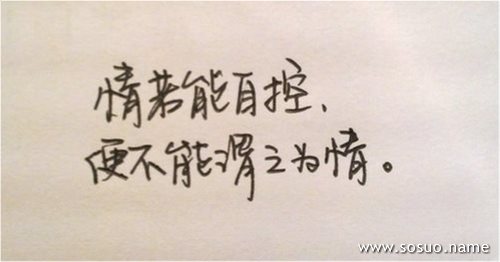 情若能自控、
便不能谓之为情。
www.sosuo.name